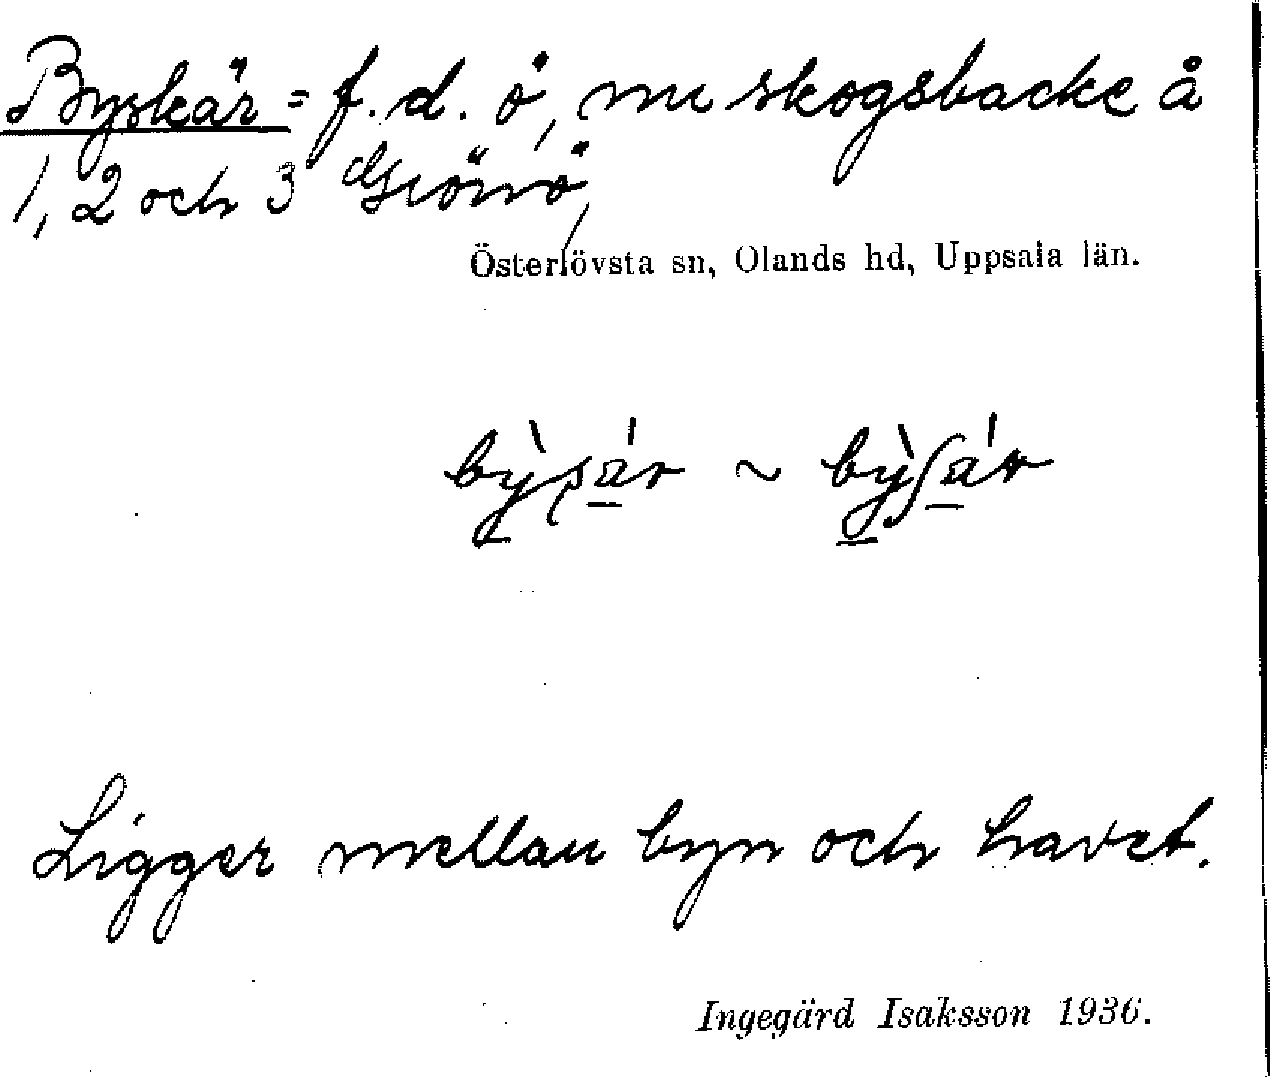 Byskär = f. d. ö, nu skogsbacke å
1, 2 och 3 Grönö,
Österlövsta sn, Olands hd, Uppsala län.
~
Ligger mellan byn och havet.
Ingegärd Isaksson 1936.